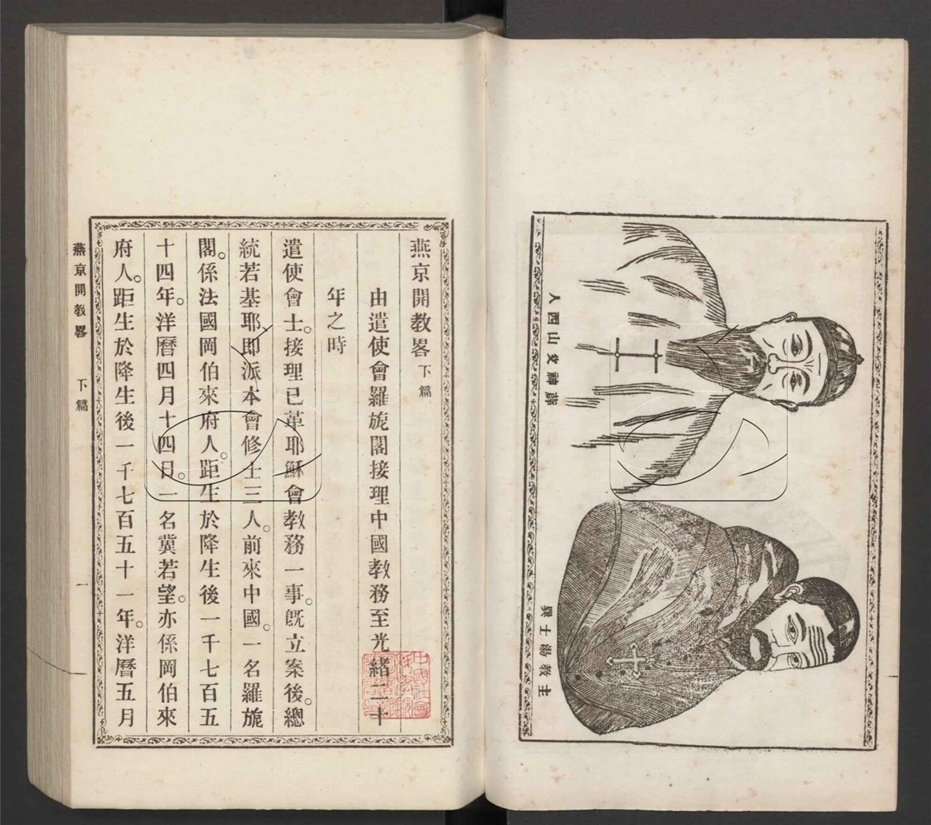 主教湯士選
薛神父山西人
燕京開教畧下篇
由遣使會羅旎閣接理中國教務至光緒二十
年之時
遣使會士。接理已革耶穌會教務一事。既立案後。總
統若基耶、即派本會修士三人。前來中國。一名羅旎
閣。係法國岡伯來府人。距生於降生後一千七百五
十四年。洋曆四月十四日。一名冀若望。亦係岡伯來
府人。距生於降生後一千七百五十一年。洋曆五月
燕京開教畧 下篇 一